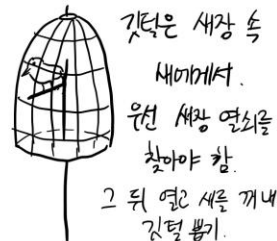 깃털은 새장 속
새에게서.
우선 새장 열쇠를
찾아야 함.
그 뒤 열고 새를 꺼내
깃털 뽑기.